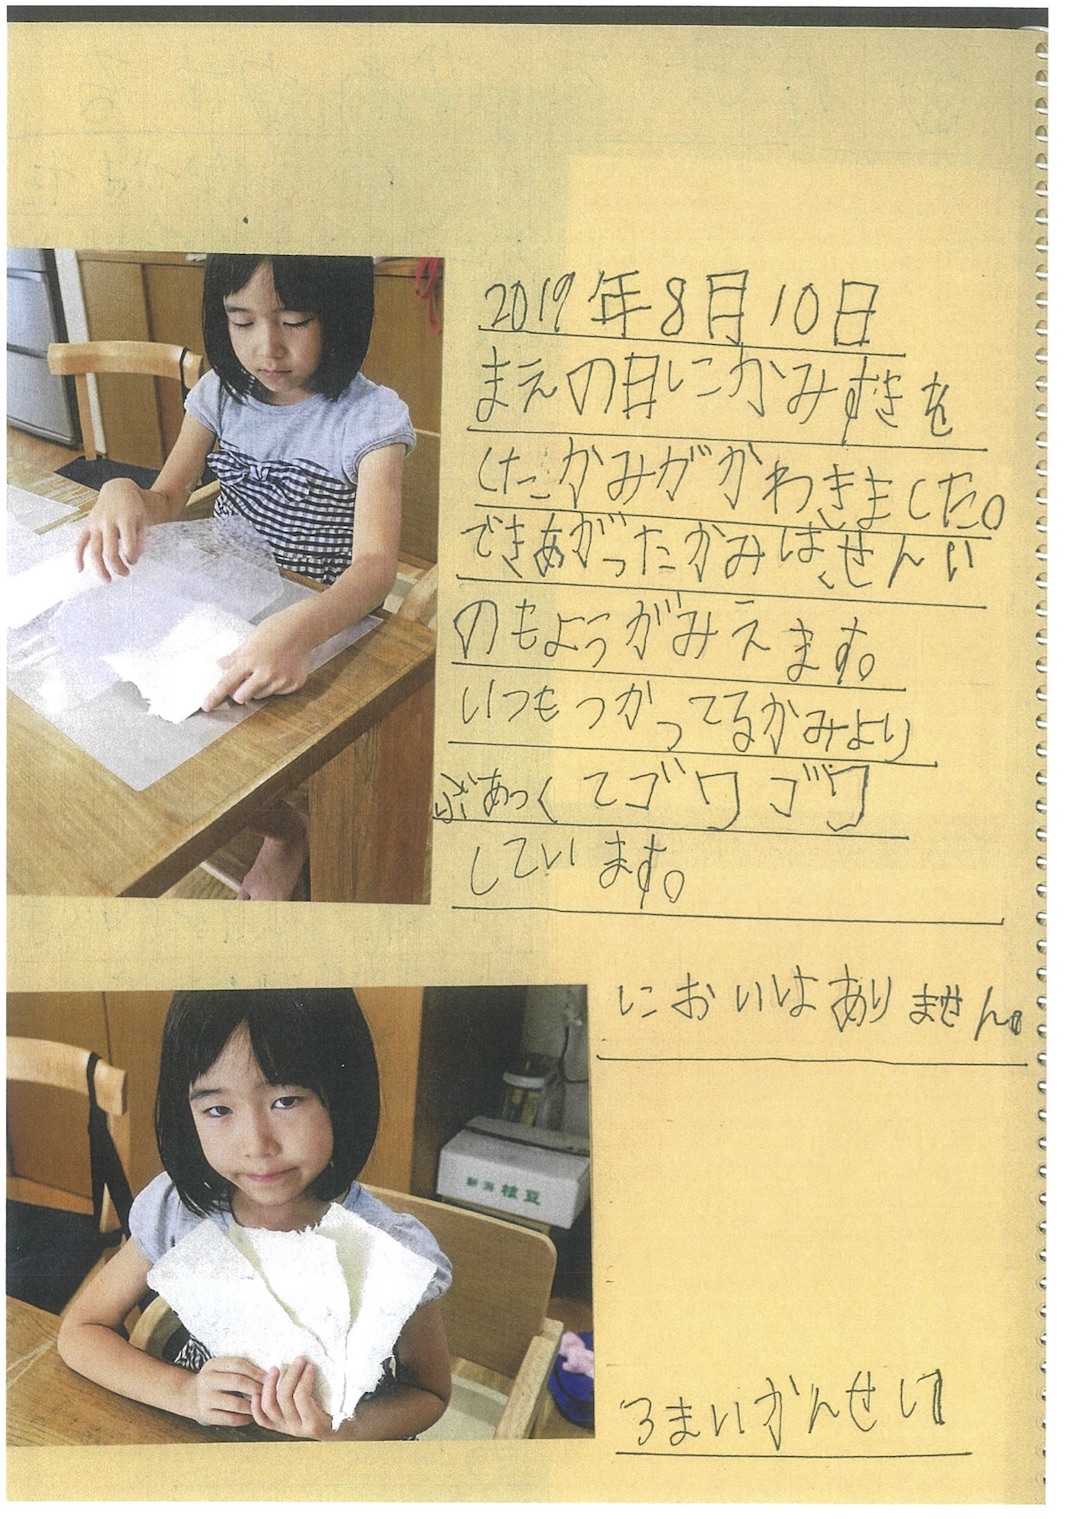 2019年8月10日
まえの日にかみすきを
したかみがかわきました。
できあがったかみは、せんい
のもようがみえます。
いつもつかってるかみより
ぶあつくてゴワゴワ
しています。
においはありません。
新潟 枝豆
3まいかんせい